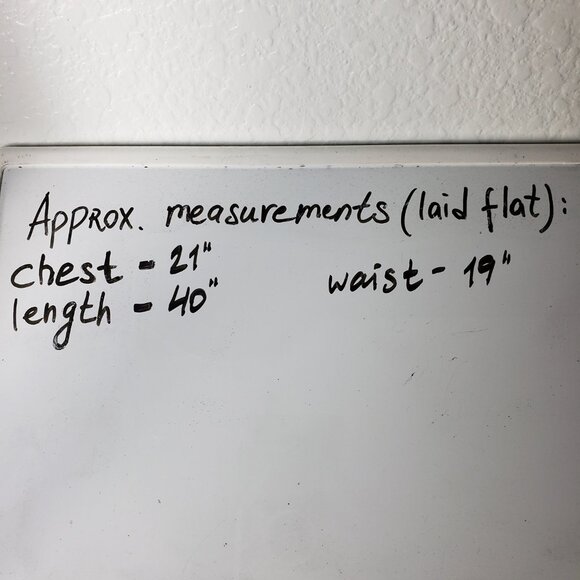 Approx. measurements (laid flat):
chest - 21" waist - 19"
length - 40"